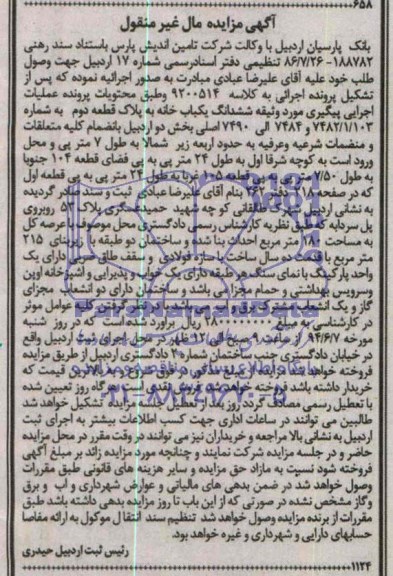 ۶۵۸
آگهی مزایده مال غیر منقول
بانک پارسیان اردبیل با وکالت شرکت تامین اندیش پارس باستناد سند رهنی
۱۸۸۷۸۲- ۸۶/۷/۲۶ تنظیمی دفتر اسنادرسمی شماره ۱۷ اردبیل جهت وصول
طلب خود علیه آقای علیرضا عبادی مبادرت به صدور اجرائیه نموده که پس از
تشکیل پرونده اجرائی به کلاسه ۹۲۰۰۵۱۴ وطبق محتویات پرونده عملیات
اجرایی پیگیری مورد وثیقه ششدانگ یکباب خانه به پلاک قطعه دوم به شماره
۷۴۸۲/۱/۱۰۳ و ۷۴۸۴ الی ۷۴۹۰ اصلی بخش دو اردبیل بانضمام کلیه متعلقات
و منضمات شرعیه وعرفیه به حدود اربعه زیر شمالا به طول ۷ متر پی و محل
ورود است به کوچه شرقا اول به طول ۲۴ متر پی به پی فضای قطعه ۱۰۴ جنوبا
به طول ۷/۵۰ متر قطعه ۱۰۵ غربا به طول ۲۴ متر پی به پی قطعه اول
که در صفحه ۲۱۸ دفتر ۶۶۲ بنام آقای علیرضا عبادی ثبت و سند صادر گردیده
به نشانی اردبیل شهرک طالقانی کوچه شهید پلاک ۵۲ روبروی
پل سردابه که طبق نظریه کارشناس رسمی دادگستری محل موصوف با عرصه کل
به مساحت ۱۸۰ متر مربع احداث بنا شده و ساختمان دو طبقه با زیربنای ۲۱۵
متر مربع با قدمت ده سال ساخت با سازه فولادی و سقف طاق ضربی دارای یک
واحد پارکینگ با نمای سنگ هر طبقه دارای یک خواب و پذیرایی و آشپزخانه اوپن
وسرویس بهداشتی و حمام مجزا می باشد و ساختمان دارای دو انشعاب مجزای
گاز و یک انشعاب مشترک برق و آب می باشد با در نظر گرفتن کلیه عوامل موثر
در کارشناسی به مبلغ ریال برآورد شده است که در روز شنبه
مورخه ۹۴/۶/۷ از ساعت ۹ صبح الی ۱۲ ظهر در محل اجرای ثبت اردبیل واقع
در خیابان دادگستری جنب ساختمان شماره ۲ دادگستری اردبیل از طریق مزایده
فروخته خواهد شد مزایده از مبلغ مذکور در فوق شروع و به بالاترین قیمت که
خریدار داشته باشد فروخته خواهد شد فروش نقدی است هرگاه روز تعیین شده
با تعطیل رسمی مصادف گردد روز بعد از تعطیل جلسه مزایده تشکیل خواهد شد
طالبین می توانند در ساعات اداری جهت کسب اطلاعات بیشتر به اجرای ثبت
اردبیل به نشانی بالا مراجعه و خریداران نیز می توانند در وقت مقرر در محل مزایده
حاضر و در جلسه مزایده شرکت نمایند و چنانچه مورد مزایده زائد بر مبلغ آگهی
فروخته شود نسبت به مازاد حق مزایده و سایر هزینه های قانونی طبق مقررات
وصول خواهد شد در ضمن بدهی های مالیاتی و عوارض شهرداری و آب و برق
وگاز مشخص نشده در صورتی که از این باب تا روز مزایده بدهی داشته باشد طبق
مقررات از برنده مزایده وصول خواهد شد تنظیم سند انتقال موکول به ارائه مفاصا
حسابهای دارایی و شهرداری و غیره خواهد بود.
رئیس ثبت اردبیل حیدری
۱۱۲۴